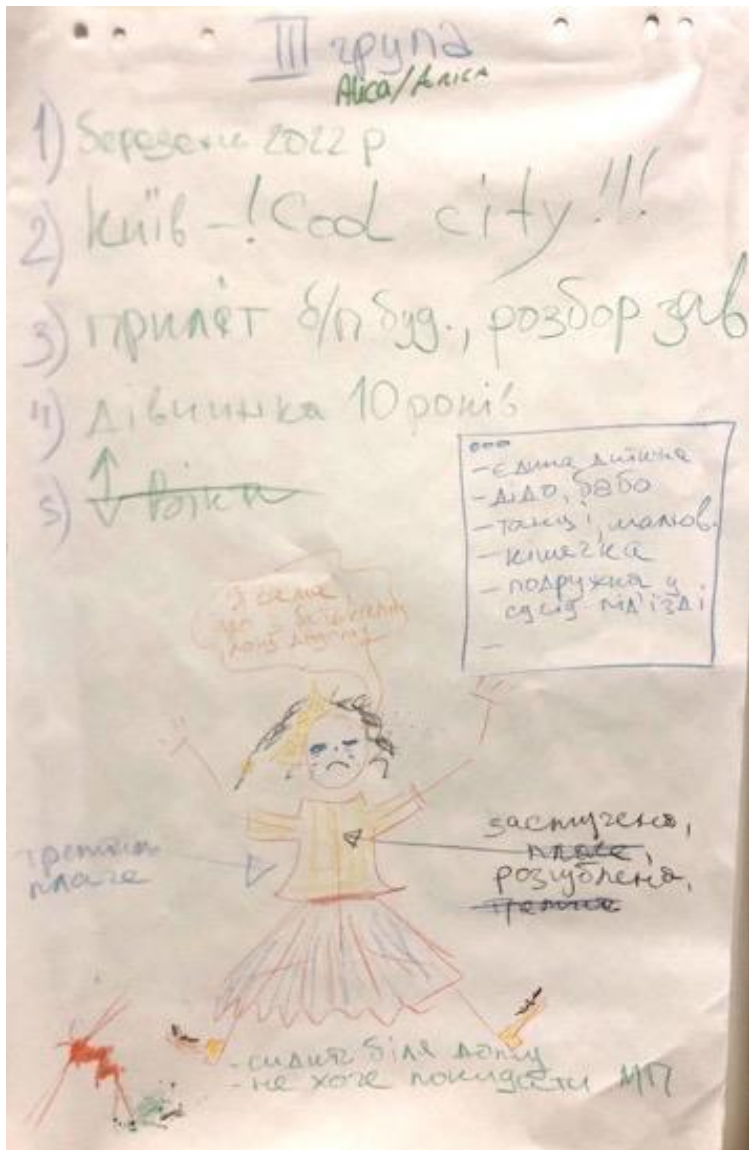 III група
Alica/Аліса
1) березень 2022 р
2) Київ – ! Cool city !!!
3) приліт б/п буд., розбор зав
4) дівчинка 10 років
5) Віка
- єдина дитина
- дідо, бабо
- танці, малюв.
- кішечка
- подружка у
сусід під'їзді
засмучена,
плаче,
розгублена,
тремтить
плаче
- сидить біля дому
- не хоче покидати МП